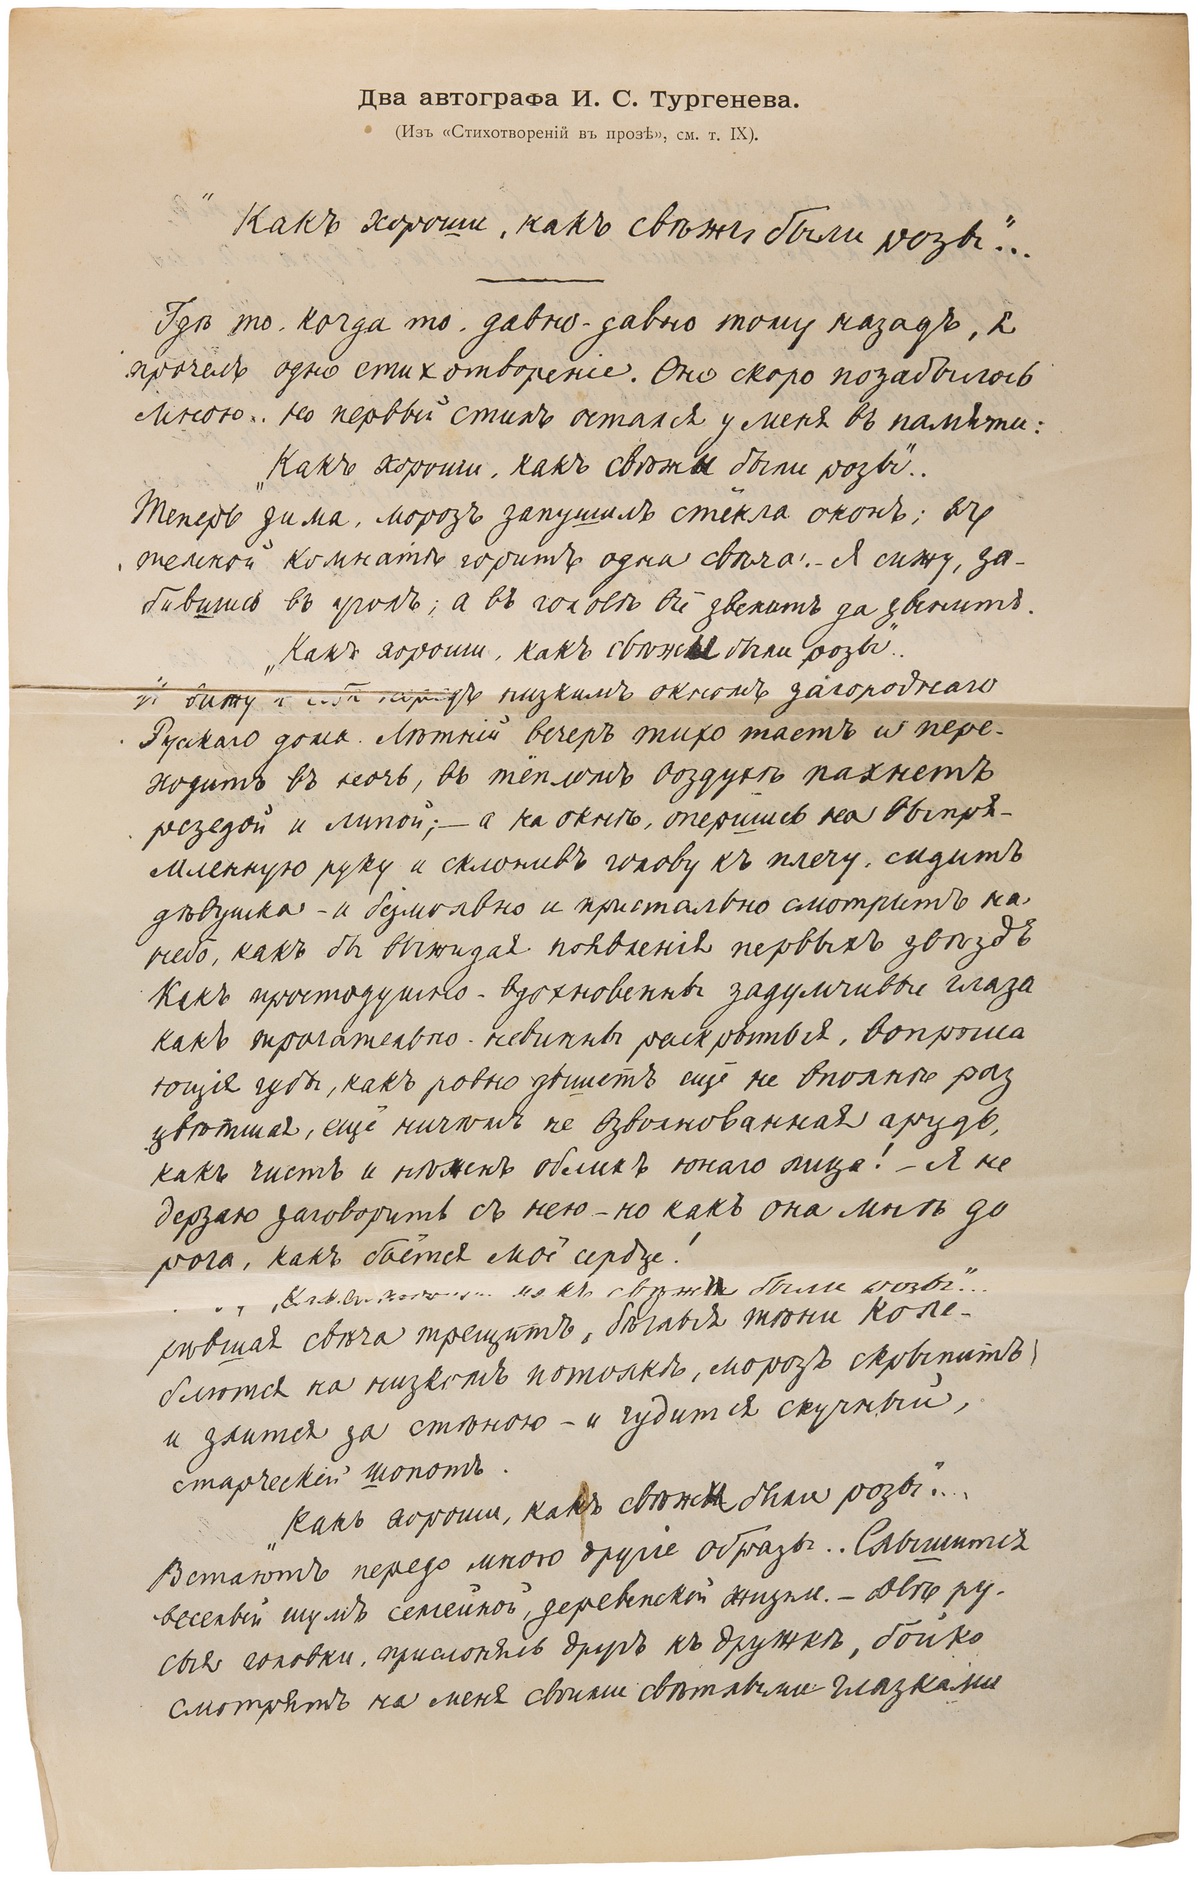 Два автографа И. С. Тургенева.
(Изъ «Стихотвореній въ прозѣ», см. т. IX).
"Какъ хороши, какъ свѣжи были розы"...
Гдѣ то, когда то, давно-давно тому назадъ, я
прочелъ одно стихотвореніе. Оно скоро позабылось
мною.. но первый стихъ остался у меня въ памяти:
„Какъ хороши, какъ свѣжи были розы"..
Теперь зима, морозъ запушилъ стёкла оконъ; въ
темной комнатѣ горитъ одна свѣча. - Я сижу, за-
бившись въ уголъ; а въ головѣ всё звенитъ да звенитъ.
„Какъ хороши, какъ свѣжи были розы"..
И вижу я себя передъ низкимъ окномъ загороднаго
Русскаго дома. Лѣтній вечеръ тихо таетъ и пере-
ходитъ въ ночь, въ тёпломъ воздухѣ пахнетъ
резедой и липой; — а на окнѣ, опершись на выпря-
мленную руку и склонивъ голову къ плечу, сидитъ
дѣвушка - и безмолвно и пристально смотритъ на
небо, какъ бы выжидая появленія первыхъ звѣздъ
Какъ простодушно-вдохновенны задумчивые глаза
какъ трогательно-невинны раскрытыя, вопроша
ющія губы, какъ ровно дышетъ ещё не вполнѣ раз
цвѣтшая, ещё ничѣмъ не взволнованная грудь,
какъ чистъ и нѣженъ обликъ юнаго лица! - Я не
дерзаю заговорить съ нею - но какъ она мнѣ до
рога, какъ бьётся моё сердце!
„Какъ хороши, какъ свѣжи были розы"...
рѣвшая свѣча трещитъ, бѣглыя тѣни коле-
блются на низкомъ потолкѣ, морозъ скрыпитъ
и злится за стѣною - и чудится скучный,
старческій шопотъ.
„Какъ хороши, какъ свѣжи были розы"...
Встаютъ передо мною другіе образы.. Слышится
веселый шумъ семейной, деревенской жизни. - Двѣ ру-
сыя головки, прислонясь другъ къ дружкѣ, бойко
смотрятъ на меня своими свѣтлыми глазками